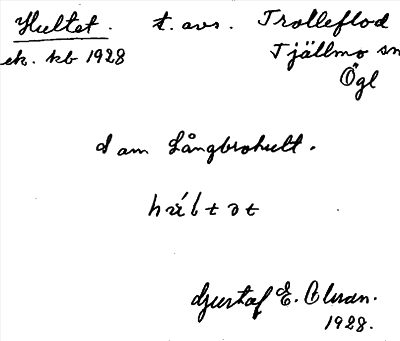 Hultet. t. avs. Trolleflod
ek. kb 1928 Tjällmo sn
Ögl
d am Långbrohult.
Gustaf E. Olson.
1928.